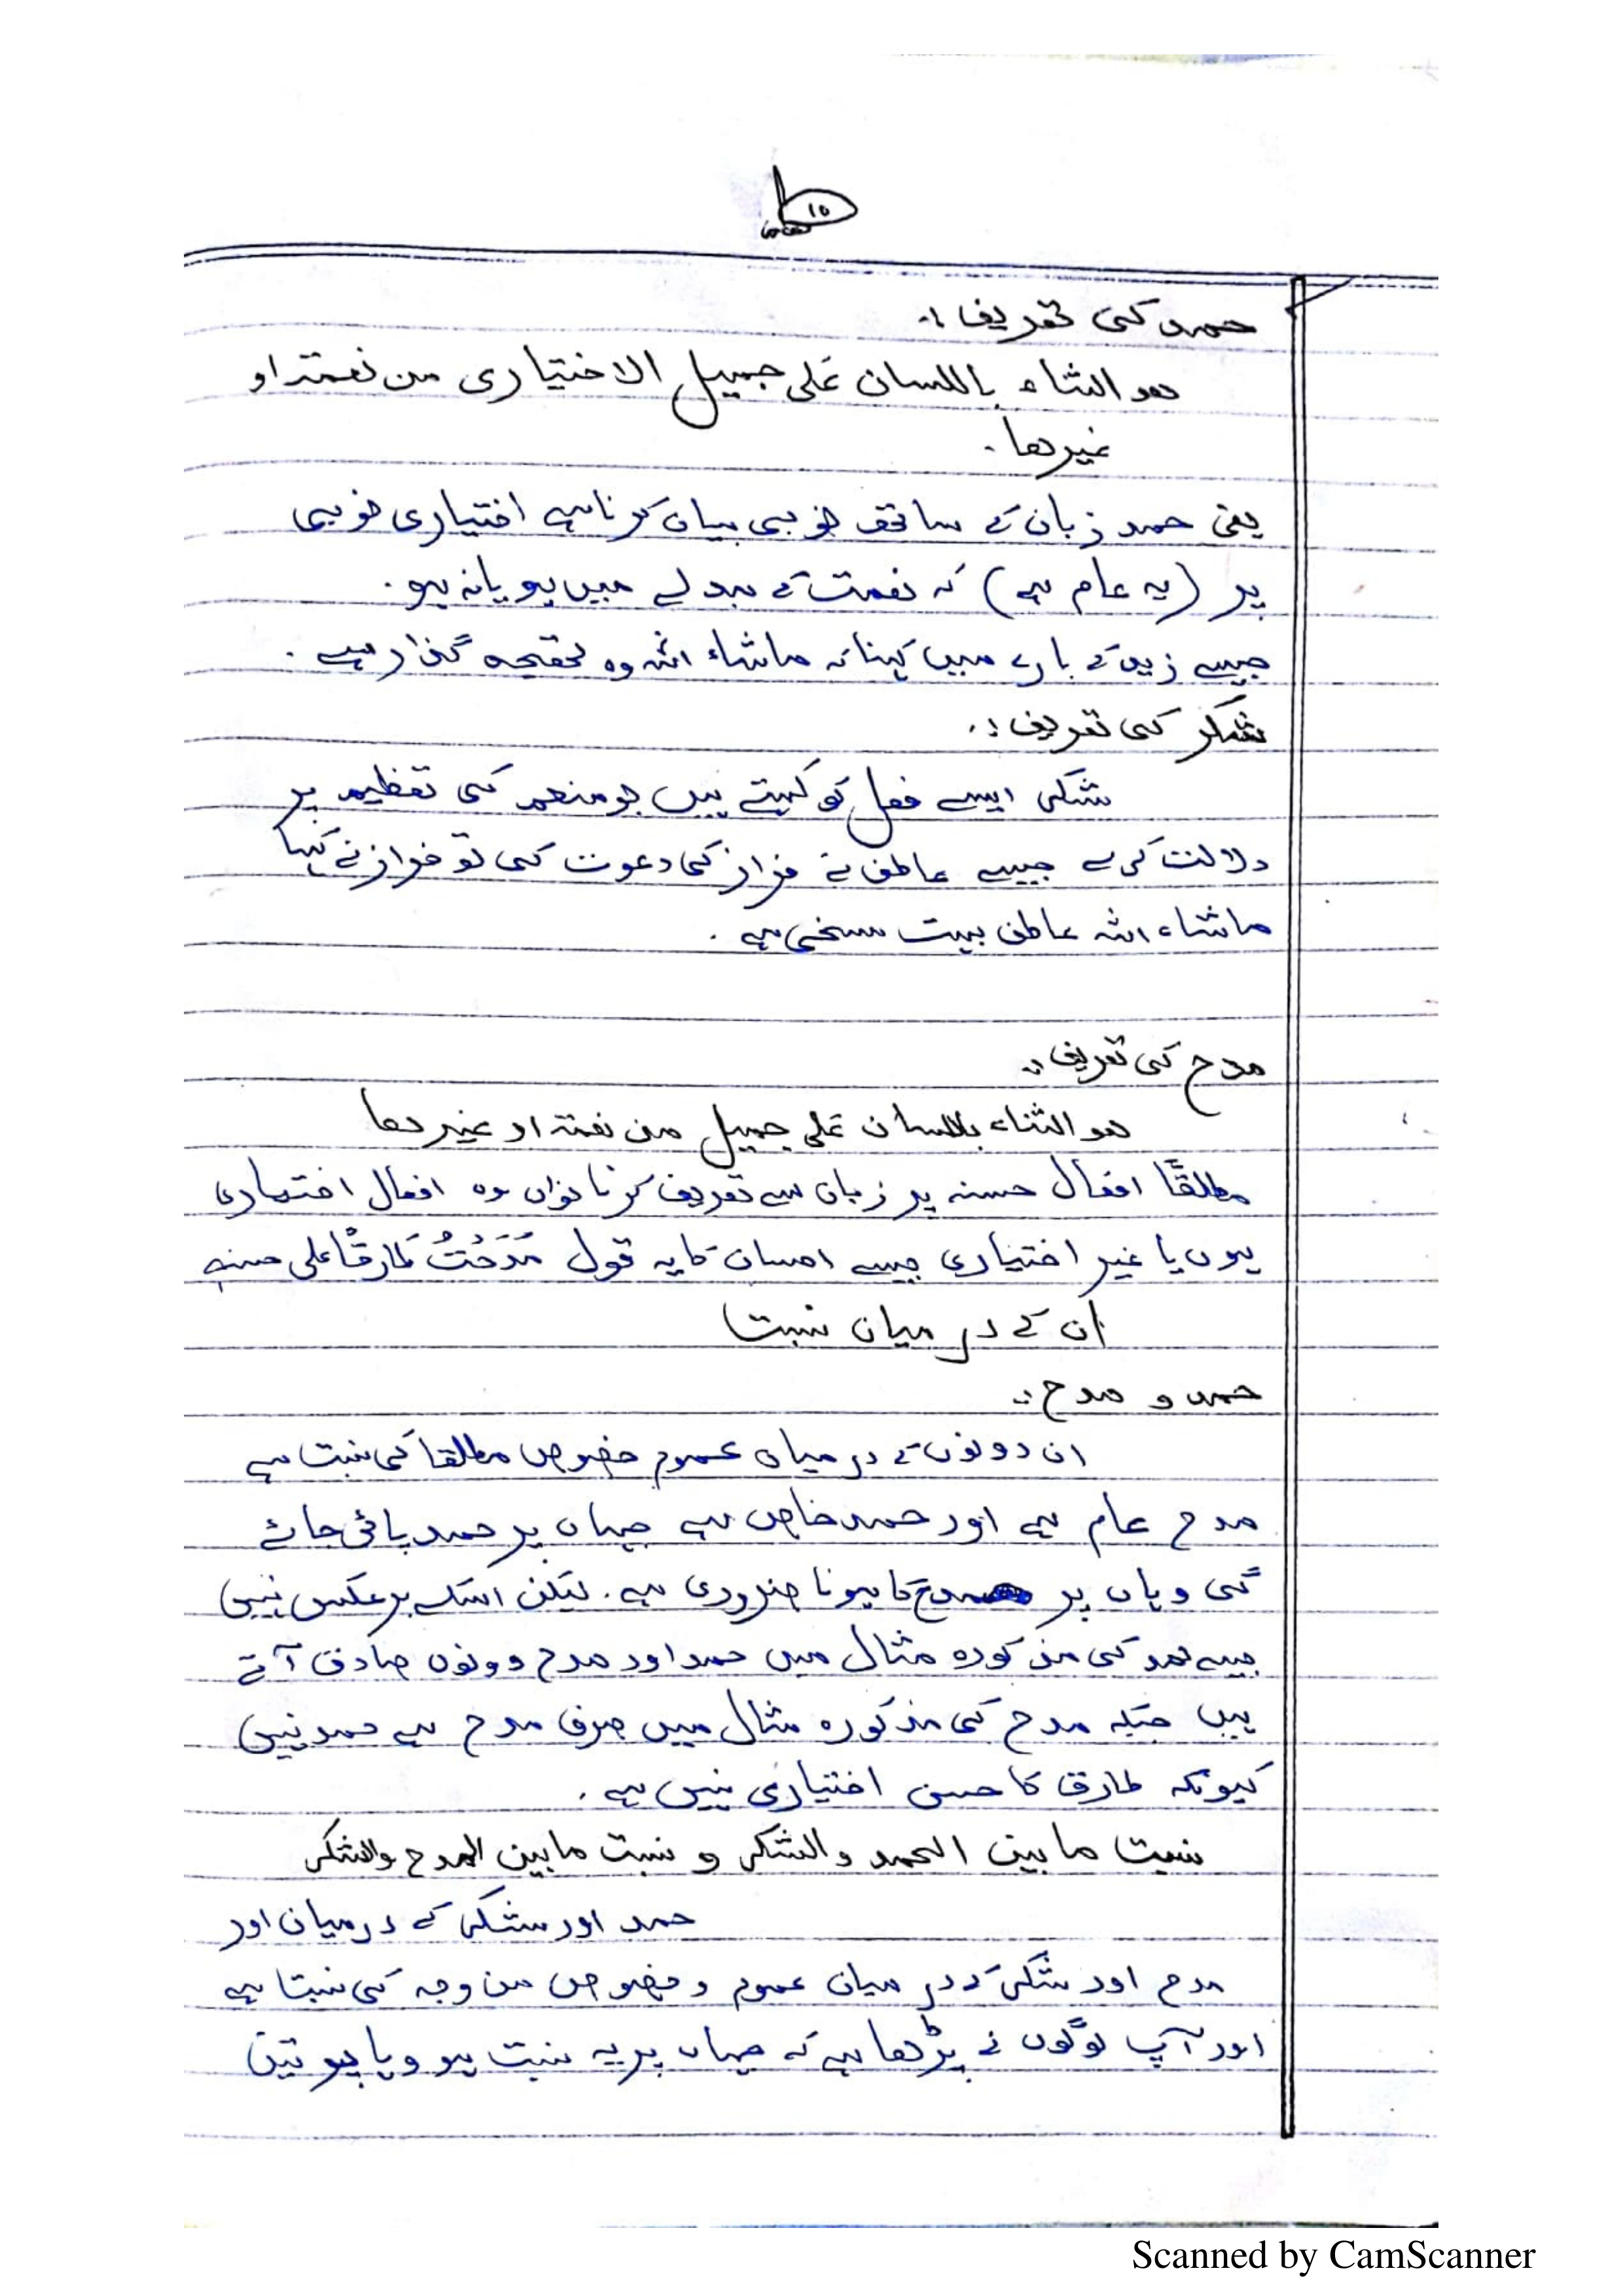 ۱۵
حمد کی تعریف :۔
ھو الثناء باللسان علی جمیل الاختیاری من نعمۃ او
غیرھا ۔
یعنی حمد زبان کے ساتھ خوبی بیان کرنا ہے اختیاری خوبی
پر (یہ عام ہے) کہ نعمت کے بدلے میں ہو یا نہ ہو ۔
جیسے زید کے بارے میں کہنا کہ ماشاء اللہ وہ گذار ہے ۔
شکر کی تعریف :۔
شکر ایسے فعل کو کہتے ہیں جو منعم کی تعظیم پر
دلالت کرے جیسے عاطف نے فراز کی دعوت کی تو فراز نے کہا
ماشاء اللہ عاطف بہت سخی ہے ۔
مدح کی تعریف :۔
ھو الثناء باللسان علی جمیل من نعمۃ او غیرھا
مطلقًا افعال حسنہ پر زبان سے تعریف کرنا خواں وہ افعال اختیاری
ہوں یا غیر اختیاری جیسے احسان کا یہ قول مَدَحْتُ طَارِقًا علی حسنہ
ان کے درمیان نسبت
حمد و مدح :۔
ان دونوں کے درمیان عموم خصوص مطلقا کی نسبت ہے
مدح عام ہے اور حمد خاص ہے جہاں پر حمد پائی جائے
گی وہاں پر مدح کا ہونا ضروری ہے ۔ لیکن اسکے برعکس نہیں
جیسے حمد کی مذکورہ مثال میں حمد اور مدح دونوں صادق آتے
ہیں جبکہ مدح کی مذکورہ مثال میں صرف مدح ہے حمد نہیں
کیونکہ طارق کا حسن اختیاری نہیں ہے ۔
نسبت ما بین الحمد والشکر و نسبت ما بین المدح والشکر
حمد اور شکر کے درمیان اور
مدح اور شکر کے درمیان عموم و خصوص من وجہ کی نسبتا ہے
اور آپ لوگوں نے پڑھا ہے کہ جہاں پر یہ نسبت ہو وہاں ہو تین
Scanned by CamScanner